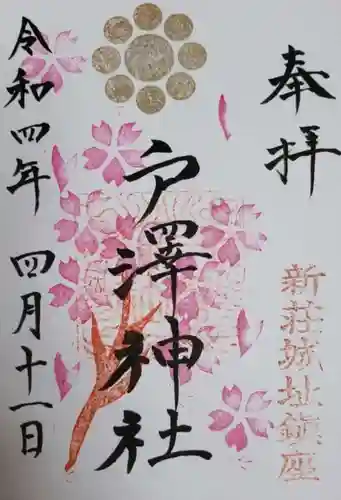 奉拝
新荘城址鎮座
戸澤神社
令和四年 四月十一日